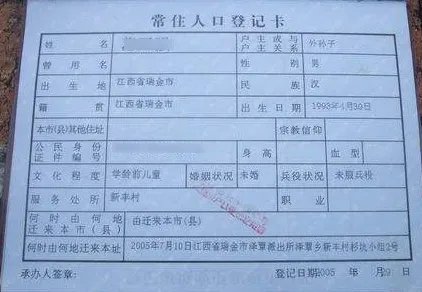 常住人口登记卡
姓名 户主或与户主关系 外孙子
曾用名 性别 男
出生地 江西省瑞金市 民族 汉
籍贯 江西省瑞金市 出生日期 1993年4月30日
本市(县)其他住址 宗教信仰
公民身份证件编号 身高 血型
文化程度 学龄前儿童 婚姻状况 未婚 兵役状况 未服兵役
服务处所 新丰村 职业
何时由何地迁来本市(县) 由迁来本市(县)
何时由何地迁来本址 2005年7月10日江西省瑞金市泽覃派出所泽覃乡新丰村杉坑小组2号
承办人签章: 登记日期2005 年 月 日